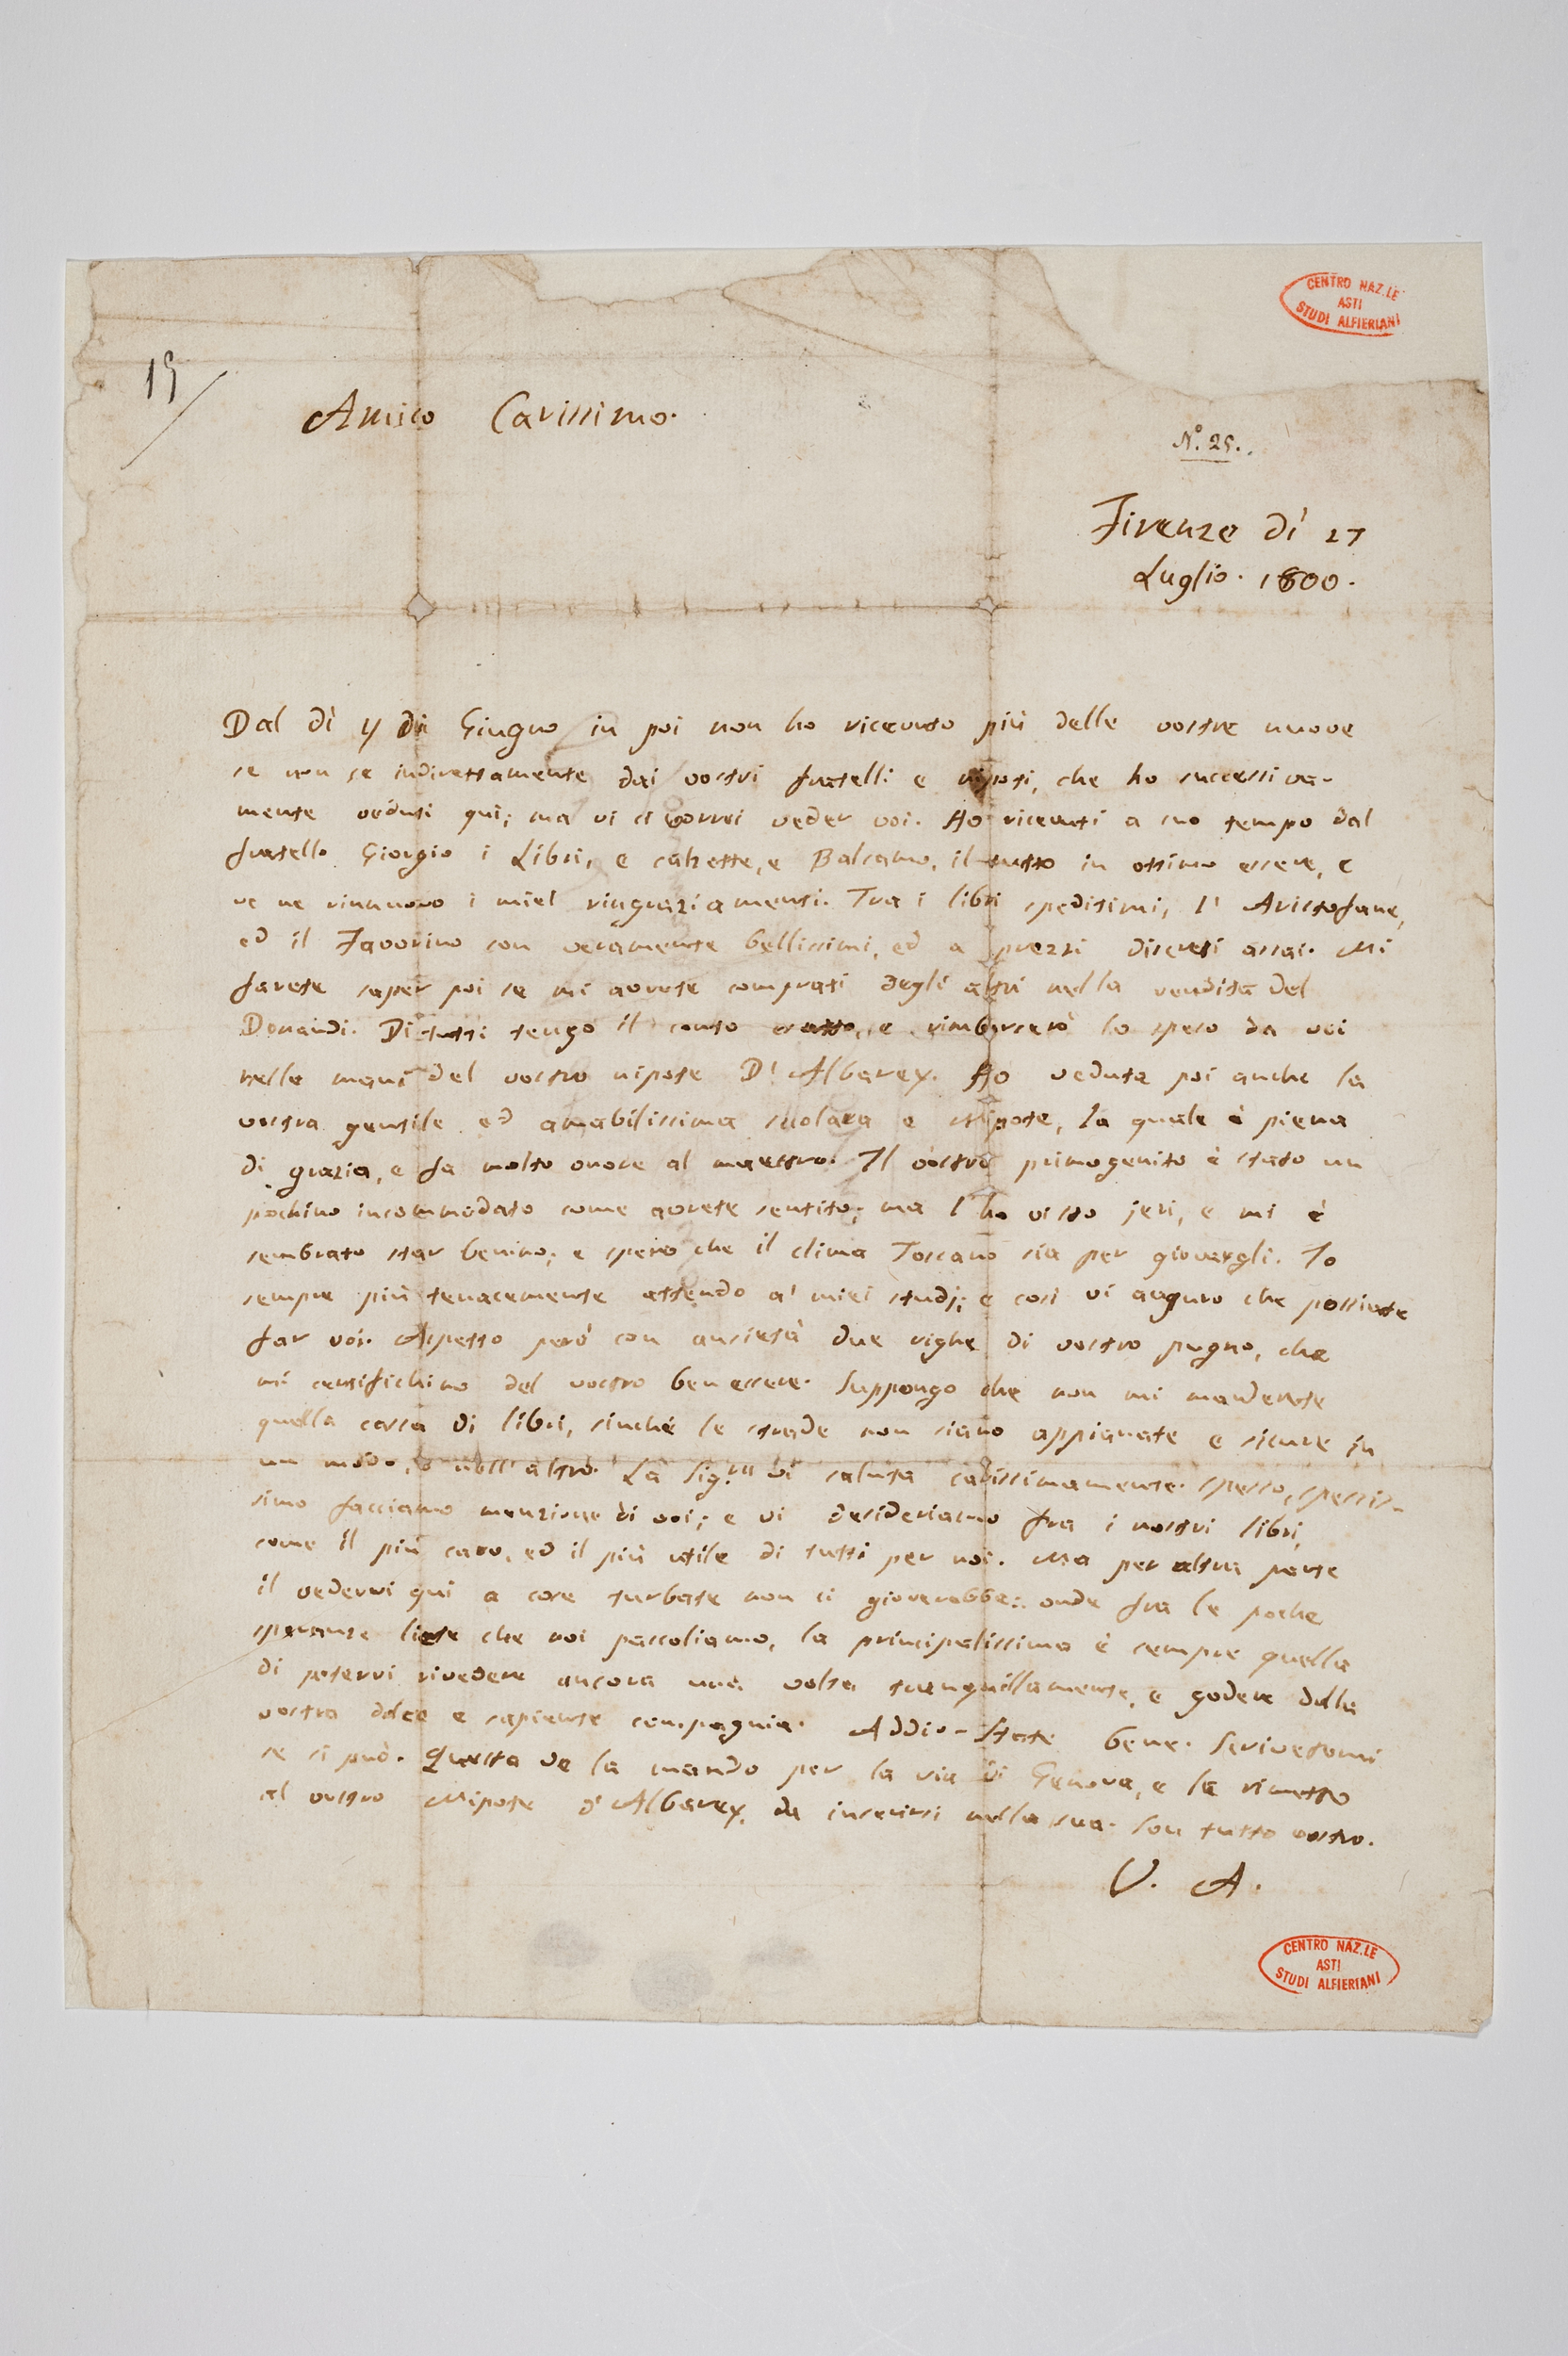 CENTRO NAZ.LE
ASTI
STUDI ALFIERIANI
19
Amico Carissimo.
N.º 25.
Firenze dì 27
Luglio. 1800.
Dal dì 4 di Giugno in poi non ho ricevuto più delle vostre nuove
se non se indirettamente dai vostri fratelli e niposi, che ho successiva-
mente veduti quì; ma vi ci vorrei veder voi. Ho ricevuti a suo tempo dal
fratello Giorgio i Libri, e calzette, e Balsamo, il tutto in ottimo essere, e
ve ne rinnuovo i miei ringraziamenti. Tra i libri speditimi, l' Aristofane,
ed il Favorino son veramente bellissimi, ed a prezzi discreti assai. Mi
farete saper poi se mi avrete comprati degli altri nella vendita del
Donaudi. Di tutti tengo il conto esatto, e rimborserò lo speso da voi
nelle mani del vostro nipote D' Albarey. Ho veduta poi anche la
vostra gentile ed amabilissima scolara e Nipote, la quale è piena
di grazia, e fa molto onore al maestro. Il vostro primogenito è stato un
pochino incommodato come avrete sentito; ma l' ho visto jeri, e mi è
sembrato star benino; e spero che il clima Toscano sia per giovargli. Io
sempre più tenacemente attendo a' miei studj; e così vi auguro che possiate
far voi. Aspetto però con ansietà due righe di vostro pugno, che
mi certifichino del vostro ben essere. Suppongo che non mi manderete
quella cassa di libri, sinchè le strade non siano appianate e sicure in
un modo, o nell' altro. La Sig.ra vi saluta carissimamente. spesso, spessis-
simo facciamo menzione di voi; e vi desideriamo fra i nostri libri,
come il più caro, ed il più utile di tutti per noi. Ma per altra parte
il vedervi qui a cose turbate non ci gioverebbe: onde fra le poche
speranze liete che noi pascoliamo, la principalissima è sempre quella
di potervi rivedere ancora una volta tranquillamente, e godere della
vostra dolce e sapiente compagnia. Addio - State bene. Scrivetemi
se si può. Questa ve la mando per la via di Genova, e la rimetto
al vostro Nipote d' Albarey, da inserirsi nella sua. Son tutto vostro.
V. A.
CENTRO NAZ.LE
ASTI
STUDI ALFIERIANI